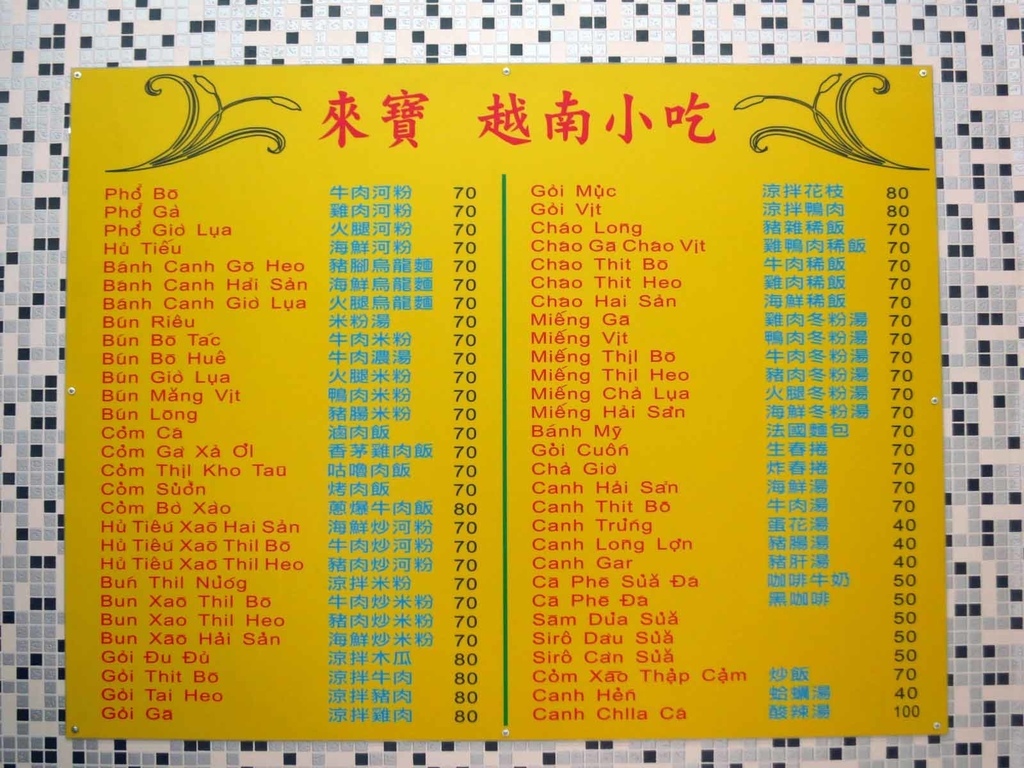 來寶 越南小吃
Phổ Bō 牛肉河粉 70
Phổ Gà 雞肉河粉 70
Phổ Giò Lụa 火腿河粉 70
Hủ Tiếu 海鮮河粉 70
Bánh Canh Gō Heo 豬腳烏龍麵 70
Bánh Canh Hải Sản 海鮮烏龍麵 70
Bánh Canh Giò Lụa 火腿烏龍麵 70
Bún Riêu 米粉湯 70
Bún Bō Tái 牛肉米粉 70
Bún Bō Huê 牛肉濃湯 70
Bún Giò Lụa 火腿米粉 70
Bún Măng Vịt 鴨肉米粉 70
Bún Lōng 豬腸米粉 70
Cỏm Cá 滷肉飯 70
Cỏm Ga Xả Ơl 香茅雞肉飯 70
Cỏm Thịl Kho Taū 咕嚕肉飯 70
Cỏm Sủờn 烤肉飯 70
Cỏm Bò Xào 蔥爆牛肉飯 80
Hủ Tiếu Xaō Hai Sản 海鮮炒河粉 70
Hủ Tiếu Xaō Thil Bō 牛肉炒河粉 70
Hủ Tiếu Xaō Thil Heo 豬肉炒河粉 70
Buń Thil Nủớg 涼拌米粉 70
Bun Xaō Thil Bō 牛肉炒米粉 70
Bun Xao Thil Heo 豬肉炒米粉 70
Bun Xaō Hải Sản 海鮮炒米粉 70
Gỏi Đu Đủ 涼拌木瓜 80
Gỏi Thit Bō 涼拌牛肉 80
Gỏi Tai Heo 涼拌豬肉 80
Gỏi Ga 涼拌雞肉 80
Gỏi Mục 涼拌花枝 80
Gỏi Vịt 涼拌鴨肉 80
Cháo Long 豬雜稀飯 70
Chào Gà Chào Vịt 雞鴨肉稀飯 70
Chào Thit Bō 牛肉稀飯 70
Chào Thit Heo 雞肉稀飯 70
Chào Hai Sản 海鮮稀飯 70
Miếng Gà 雞肉冬粉湯 70
Miếng Vịt 鴨肉冬粉湯 70
Miếng Thịl Bō 牛肉冬粉湯 70
Miếng Thịl Heo 豬肉冬粉湯 70
Miếng Chả Lụa 火腿冬粉湯 70
Miếng Hải Sản 海鮮冬粉湯 70
Bánh Mỹ 法國麵包 70
Gỏi Cuốn 生春捲 70
Chả Giơ 炸春捲 70
Canh Hải Sản 海鮮湯 70
Canh Thit Bō 牛肉湯 70
Canh Trưng 蛋花湯 40
Canh Long Lợn 豬腸湯 40
Canh Gar 豬肝湯 40
Cā Phē Sủă Đá 咖啡牛奶 50
Cā Phē Đà 黑咖啡 50
Sām Dủa Sủă 50
Sirô Dau Sủă 50
Sirô Can Sủă 50
Cỏm Xāo Thập Cảm 炒飯 70
Canh Hến 蛤蠣湯 40
Canh Chlla Cá 酸辣湯 100